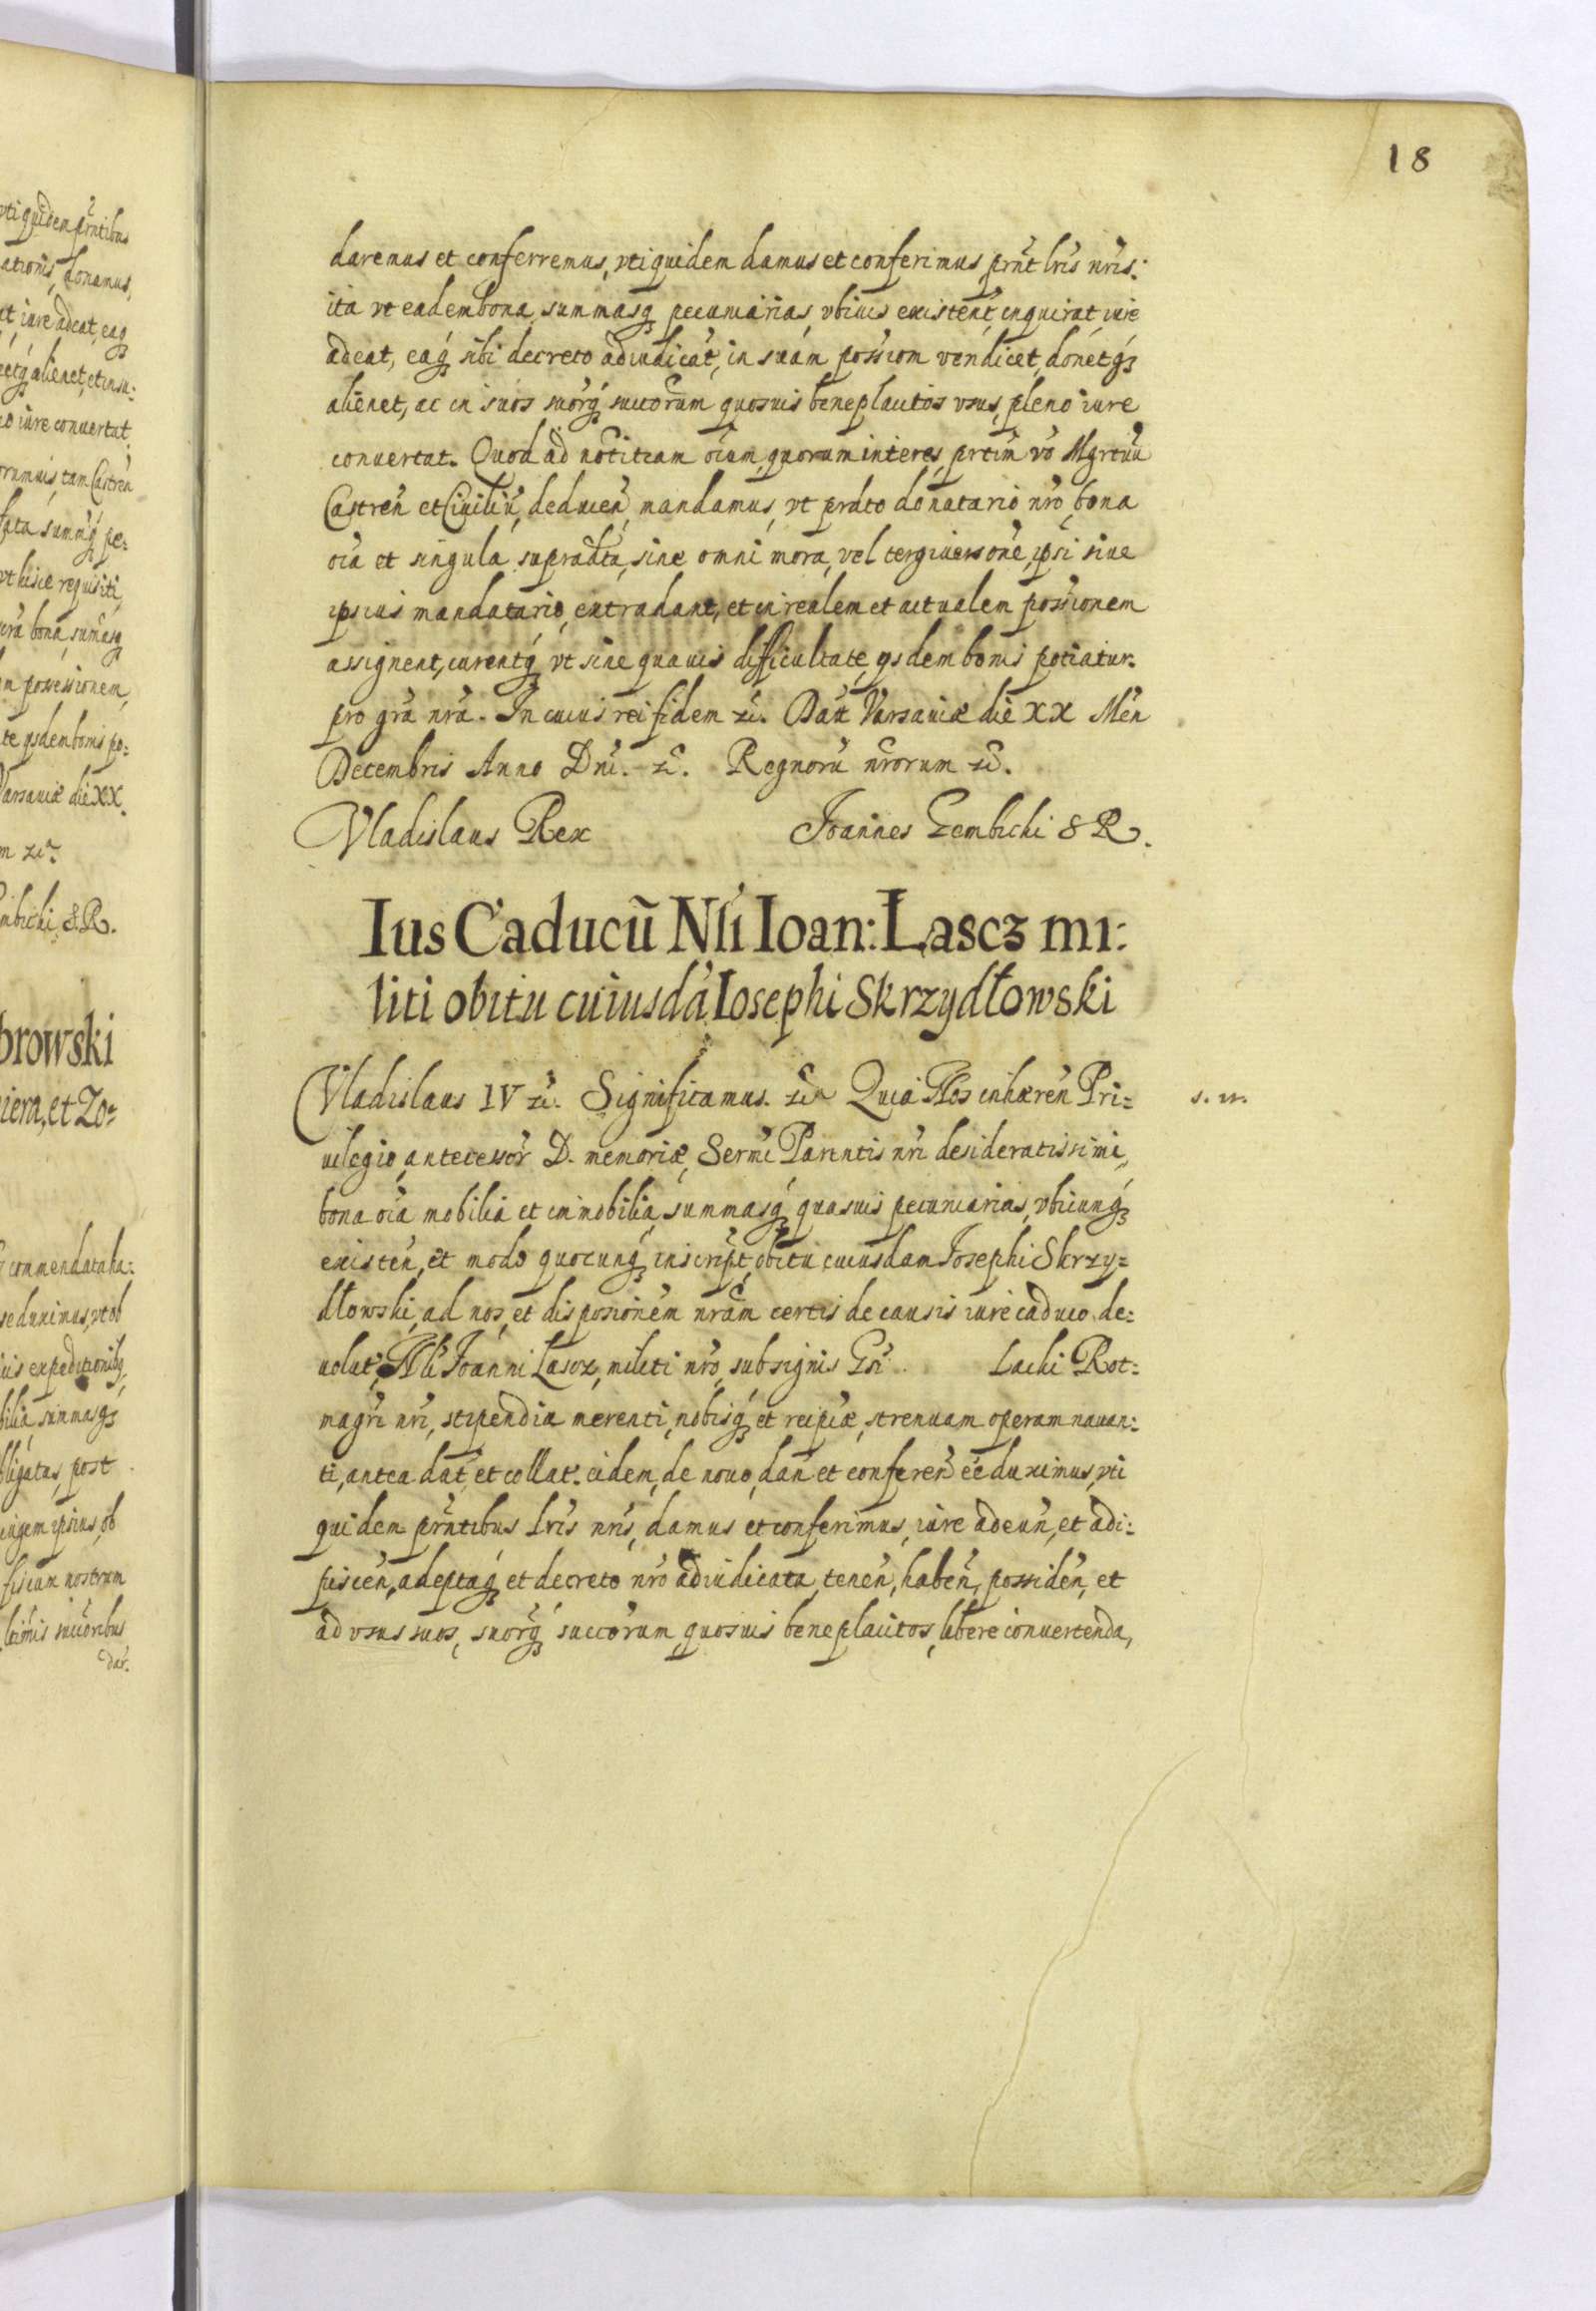 18
daremus et conferremus, vti quidem damus et conferimus prñt lris nris:
ita vt eadem bona, summasq pecuniarias, vbiuis existent, inquirat, iure
adeat, eaq sibi decreto adiudicat, in suam possiom vendicet, donetq
alienet, ac in suos suorq succorum quosuis beneplacitos vsus, pleno iure
conuertat. Quod ad notitiam oium, quorum interes, prtim vo Mgrtuu
Castren et Ciuiliu, deducen, mandamus, vt prdto donatario nro, bona
oia et singula supradta, sine omni mora, vel tergiuersone, ipsi siue
ipsius mandatario, extradant, et in realem et actualem possionem
assignent, curentq vt sine quauis difficultate, ysdem bonis potiatur.
pro gra nra. In cuius rei fidem zc. Datt Varsauiæ die XX Men
Decembris Anno Dni. zc. Regnoru nrorum zc.
Vladislaus Rex Joannes Gembicki S R.
Ius Caducũ Nli Ioan: Lascz mi:
liti obitu cuiusdã Iosephi Skrzydłowski
Vladislaus IV zc. Significamus. zc Quia Nos inhæren Pri=
uilegio, antecessor D. memoriæ, Sermi Parentis nri desideratissimi,
bona oia mobilia et immobilia, summasq quasuis pecuniarias, vbicunq
existen, et modo quocunq inscript, obitu cuiusdam Josephi Skrzy=
dłowski, ad nos, et disposionem nram certis de causis iure caduco de:
uolut, Nli Joanni Lascz, militi nro, sub signis Gsi Lachi Rot:
magri nri, stipendia merenti, nobisq et reipcæ, strenuam operam nauan:
ti, antea dat, et collat. eidem, de nouo, dan et conferen ee duximus, vti
quidem prñtibus lris nris, damus et conferimus, iure adeun, et adi:
piscen, adeptaq et decreto nro adiudicata, tenen, haben, possiden, et
ad vsus suos, suorq succorum, quosuis beneplacitos, libere conuertenda,